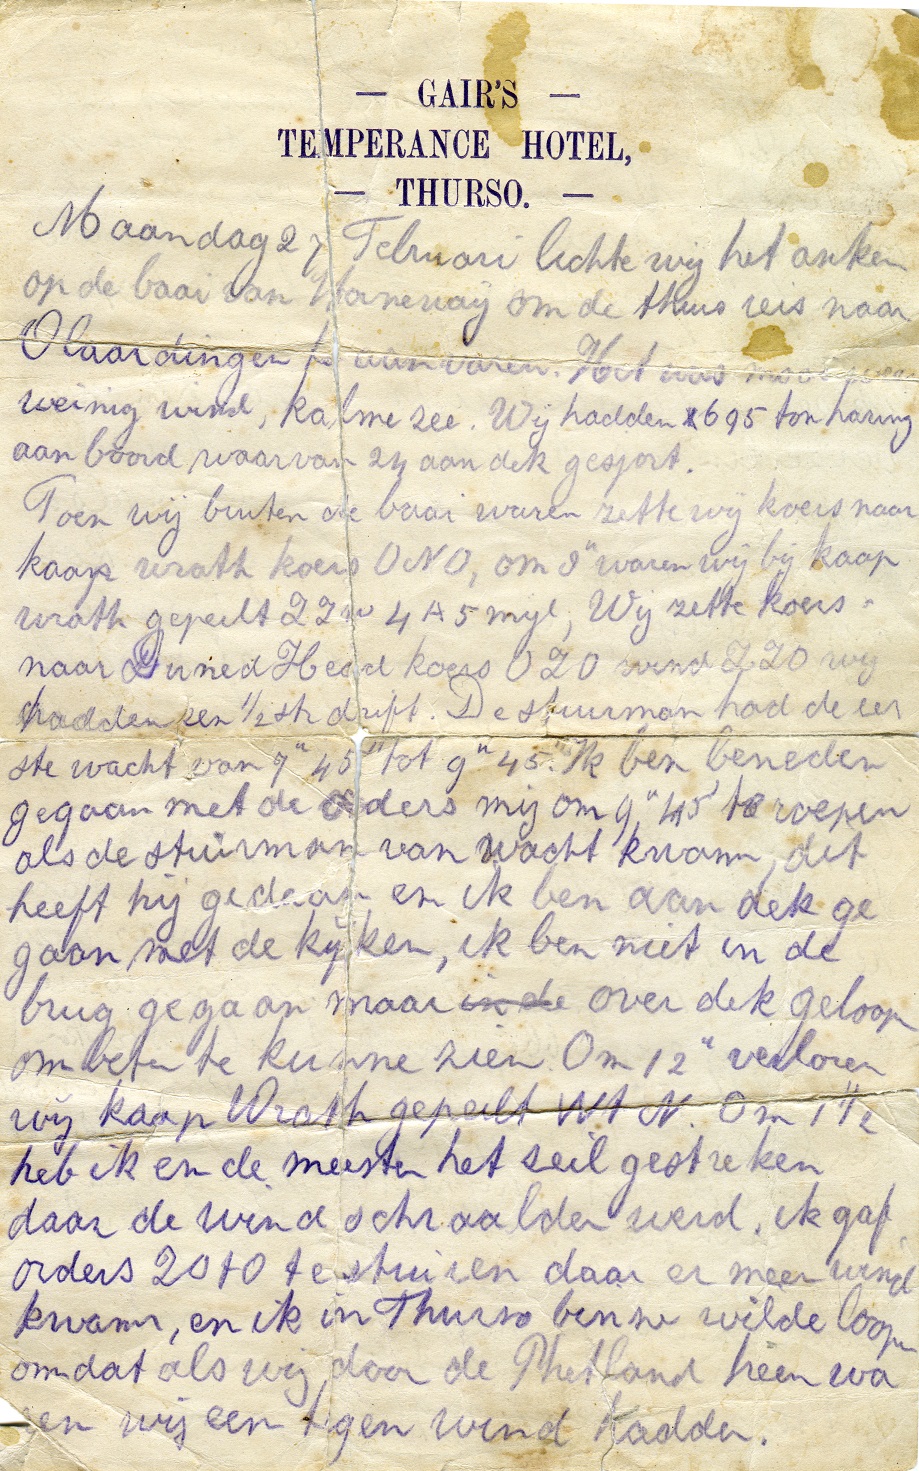 — GAIR'S —
TEMPERANCE HOTEL,
— THURSO. —
Maandag 27 Februari lichte wij het anker
op de baai van om de thuis reis naar
Vlaardingen te aanvaren. Het was
weinig wind, kalme zee. Wij hadden 695 ton haring
aan boord waarvan 24 aan dek gesjort.
Toen wij buiten de baai waren zette wij koers naar
kaap wrath koers ONO, om 8" waren wij bij kaap
wrath gepeilt ZZW 4 A 5 mijl, Wij zette koers
naar Duned Head koers OZO wind ZZO wij
hadden een 1/2 str drift. De stuurman had de eer
ste wacht van 7" 45' tot 9" 45'. Ik ben beneden
gegaan met de orders mij om 9" 45' te roepen
als de stuurman van wacht kwam, dit
heeft hij gedaan en ik ben aan dek ge
gaan met de kijker, ik ben niet in de
brug gegaan maar in de over dek geloopen
om beter te kunne zien. Om 12" verloren
wij kaap Wrath gepeilt Wt N. Om 1 1/2
heb ik en de meester het seil gestreken
daar de wind schraalder werd, ik gaf
orders ZOtO te sturen daar er meer wind
kwam, en ik in Thurso binne wilde loopen
omdat als wij door de Phetland heen wa
ren wij een tegen wind hadden.